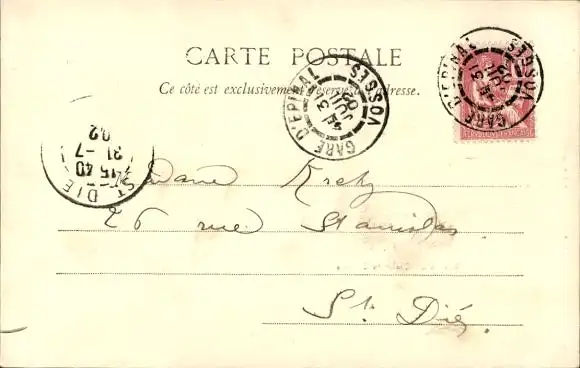 CARTE POSTALE
Ce côté est exclusivement réservé à l'adresse.
GARE D'EPINAL
VOSGES
31
JUIL
02
GARE D'EPINAL
VOSGES
REPUBLIQUE FRANÇAISE
ST DIE
15 40
31-7
02
26 rue Stanislas
St. Dié